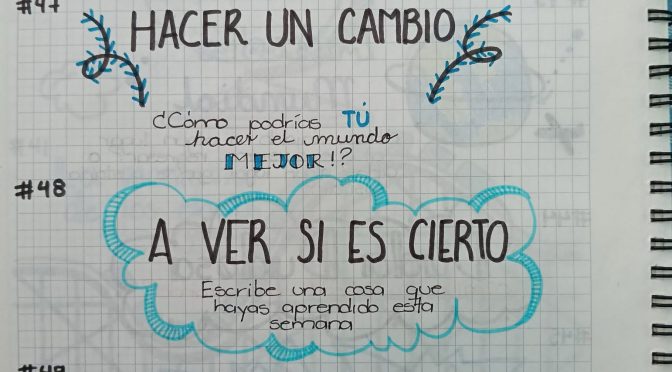 #47
HACER UN CAMBIO
¿Cómo podrías TÚ
hacer el mundo
MEJOR!?
#48
A VER SI ES CIERTO
Escribe una cosa que
hayas aprendido esta
semana
#49